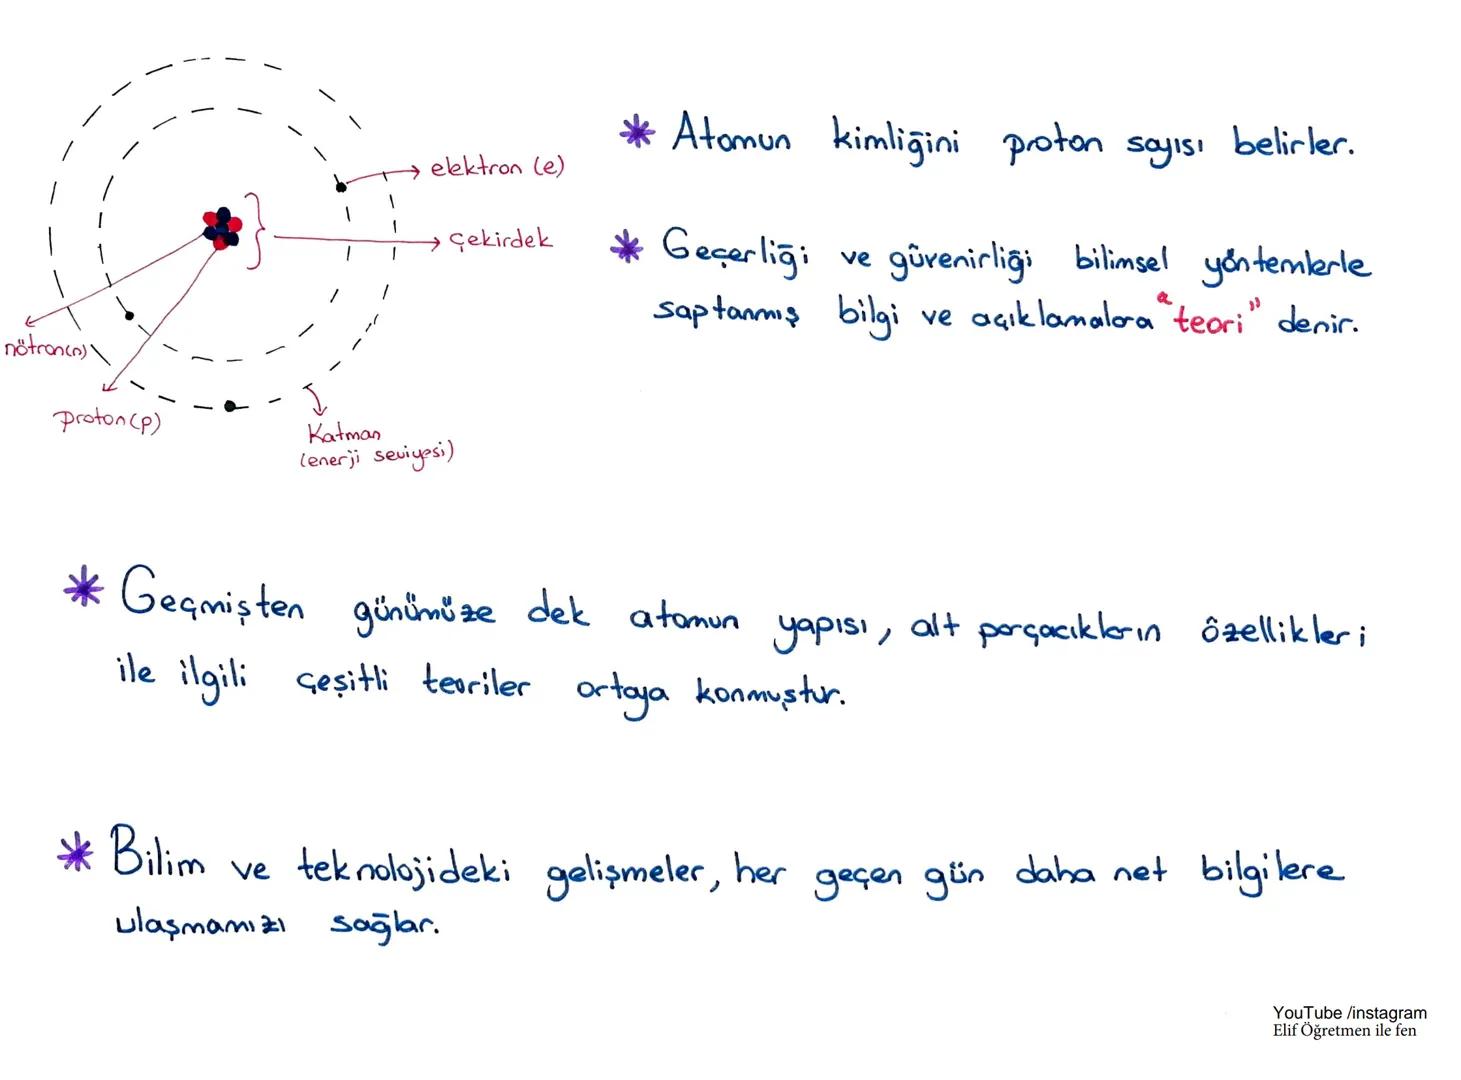 elektron (e)
çekirdek
nötron(n)
proton(p)
Katman
(enerji seviyesi)
* Atomun kimliğini proton sayısı belirler.
* Geçerliği ve güvenirliği bilimsel yöntemlerle
saptanmış bilgi ve açıklamalara "teori" denir.
* Geçmişten günümüze dek atomun yapısı, alt parçacıkların özellikleri
ile ilgili çeşitli teoriler ortaya konmuştur.
* Bilim ve teknolojideki gelişmeler, her geçen gün daha net bilgilere
ulaşmamızı sağlar.
YouTube /instagram
Elif Öğretmen ile fen